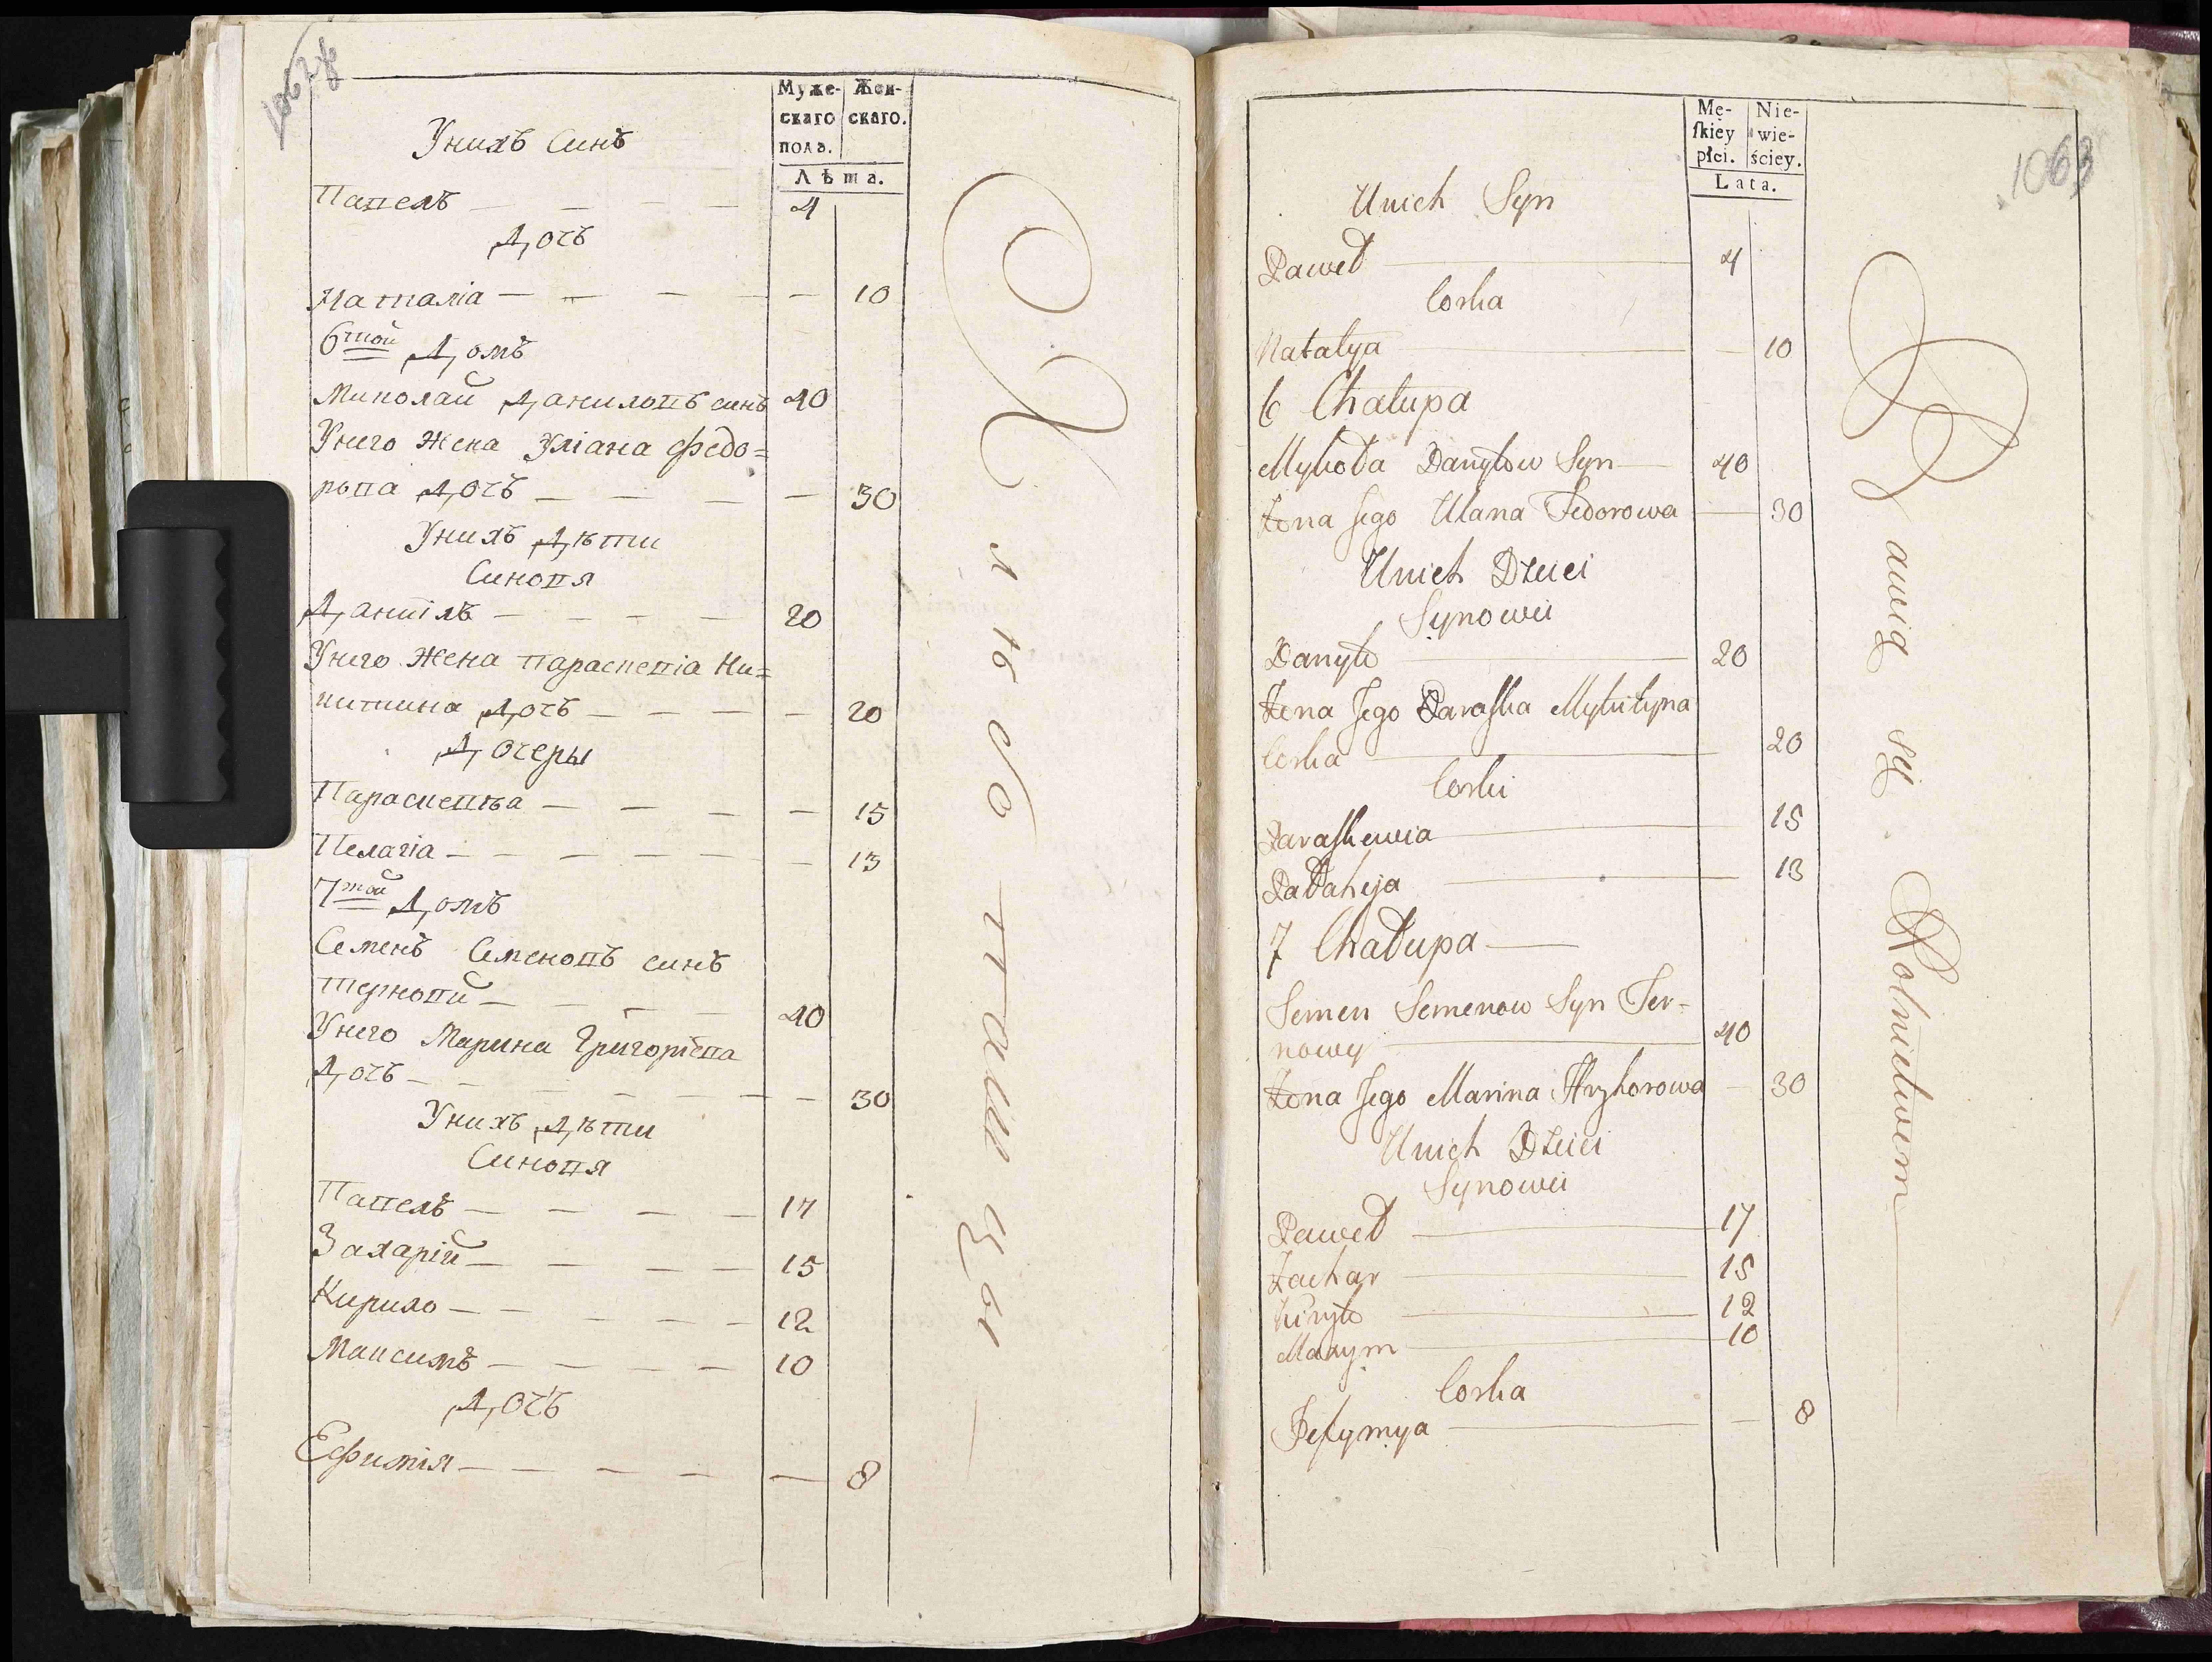 1062 об
Муже-
скаго
пола.
Жен-
скаго.
Лѣта.
Унихъ Синъ
Павелъ — — — — 4
Дочъ
Наталіа — — — — — 10
6той Домъ
Миколай Даниловъ синъ 40
Унего Жена Уліана Федо=
рова Дочъ — — — — 30
Унихъ Дѣти
Синовя
Даниілъ — — — — 20
Унего Жена Параскевіа Ни=
китина Дочъ — — — — 20
Дочеры
Параскевѣа — — — — 15
Пелагіа — — — — — 13
7мой Домъ
Семенъ Семеновъ синъ
Терновий — — — 40
Унего Марина Григоріева
Дочъ — — — — — — 30
Унихъ Дѣти
Синовя
Павелъ — — — — 17
Захарій — — — — 15
Кирило — — — — — 12
Максимъ — — — — 10
Дочъ
Ефимія — — — — — 8
Хлѣбо пашцы
1063
Mę-
ſkiéy
płci.
Nie-
wie-
ściey.
Lata.
Unich Syn
Paweł — 4
Corka
Natalya — — 10
6 Chałupa
Mykoła Danyłow Syn — 40
Żona Jego Ulana Fedorowa — 30
Unich Dzieci
Synowie
Danyło — 20
Żona Jego Paraſka Mykityna
Corka — 20
Corki
Paraſkewia — 15
Pałahija — 13
7 Chałupa —
Semen Semenow Syn Ter=
nowy — 40
Żona Jego Marina Hryhorowa — 30
Unich Dzieci
Synowie
Paweł — 17
Zachar — 15
Kiryło — 12
Maxym — 10
Corka
Jefymya — — 8
Bawią się Rolnictwem —